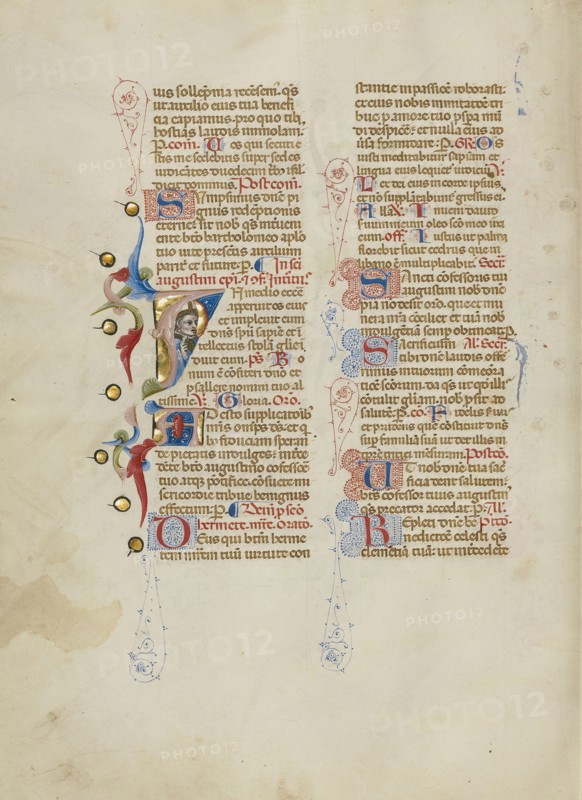 uis sollepnia recēsem̄. q̄s
ut auxilio eius tua benefi
cia capiamus. pro quo tibi
hostias laudis immolam̄.
P. com̄. Uos qui secuti e
stis me sedebitis super sedes
iudicātes duodecim
dicit dominus. Postcom̄.
Sumpsimus dn̄e pi
gnus redēptionis
eterne sit nob q̄s
ente btō bartholomeo aplo
tuo uite presentis auxilium
parit̄ et future. P. In sci
augustini epi.
In medio eccē
aperuit os eius
et impleuit eum
dn̄s spū sapiē et ī
tellectus stola glīe ī
duit eum. ps̄. Bo
num ē cōfiteri dn̄o et
psallere nomini tuo al
tissime. Gloria. Oro.
Adesto supplicatōīb
nr̄is omps dē et q
b fiduciam sperānde
de pietatis indulges. intce
dēte btō augustino cōfessoē
tuo atq pōtifice. cōsuete mi
sericordie tribue benignus
effectum. P. p scō
hermete. mr̄e. Orato.
Deus qui btm̄ herme
tem mr̄em tuū uirtute con
stantie in passiōe roborasti.
ex eius nobis imitatōe tri
bue p amore tuo pspa mū
di despicē. et nulla eius ad
uersa formidare. P. GR̄. Os
iusti meditabitur sapiam et
lingua eius loquet iudiciū.
Lex dei eius in corde ipsius.
et nō supplātabunt̄ gressus ei
Alla. Inueni dauid
seruum meum oleo scō meo unxi
eum. off. Iustus ut palma
florebit sicut cedrus que in
libano ē multiplicabit̄. Secr̄.
Sancti cōfessoris tui
augustini nob dn̄e
pia nō desit orō. que et mu
nera nr̄a cōciliet et tuā nob
indulgētiā semp obtineat. P.
Sacrificium Al. Secr̄.
tibi dn̄e laudis offe
rimus in tuorum cōmemora
tiōe scōrum. da q̄s ut q illis
cōtulit gliam. nob psit ad
salutē. P. co. Fidelis seru
et prudens quē cōstituit dn̄s
sup familiā suā ut det illis in
tpre tritici mēsuram. Postcō.
Ut nob dn̄e tua sac
ficia dent salutem.
btš cōfessor tuus augustin
q̄s precator accedat. P. Al.
Repleti dn̄e bn̄ Postcō.
nedictōē celesti q̄s
clementiā tuā. ut intcedēte